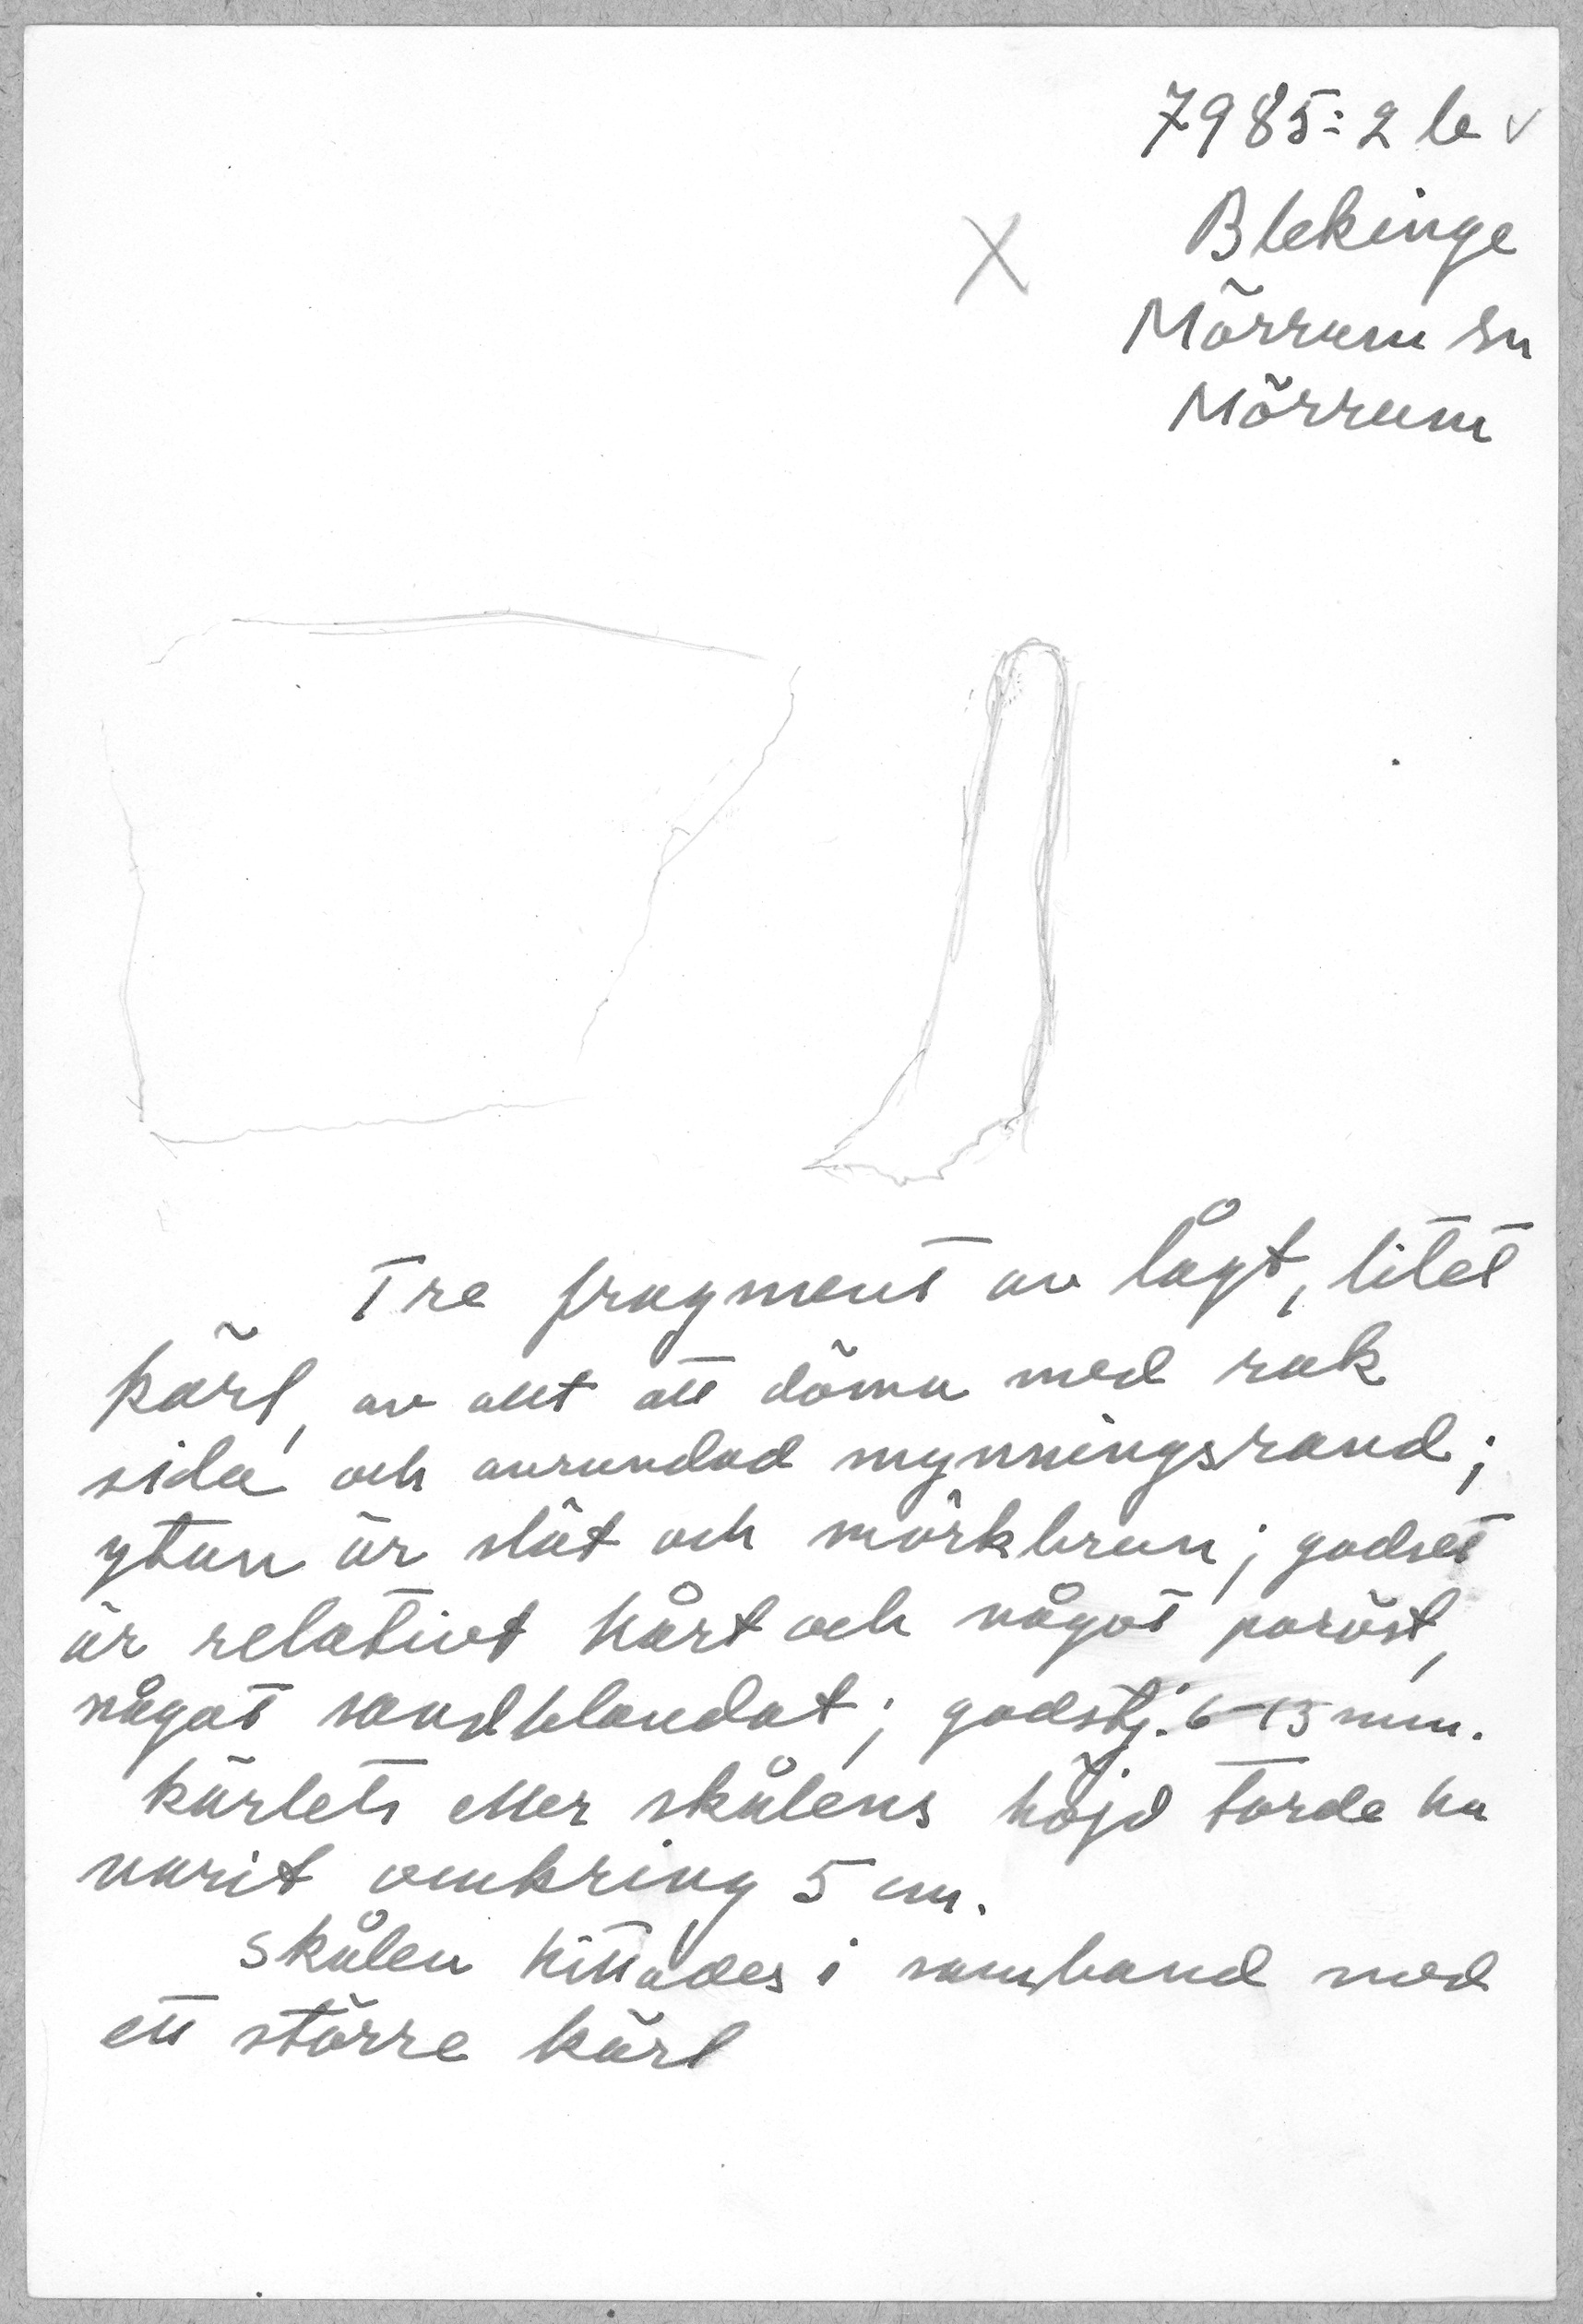 7985:2 b v
X
Blekinge
Mörrum sn
Mörrum
Tre fragment av lågt, litet
kärl, av allt att döma med rak
sida och avrundad mynningsrand;
ytan är slät och mörkbrun; godset
är relativt hårt och något poröst,
något sandblandat; godstj. 6-13 mm.
Kärlets eller skålens höjd torde ha
varit omkring 5 cm.
Skålen hittades i samband med
ett större kärl